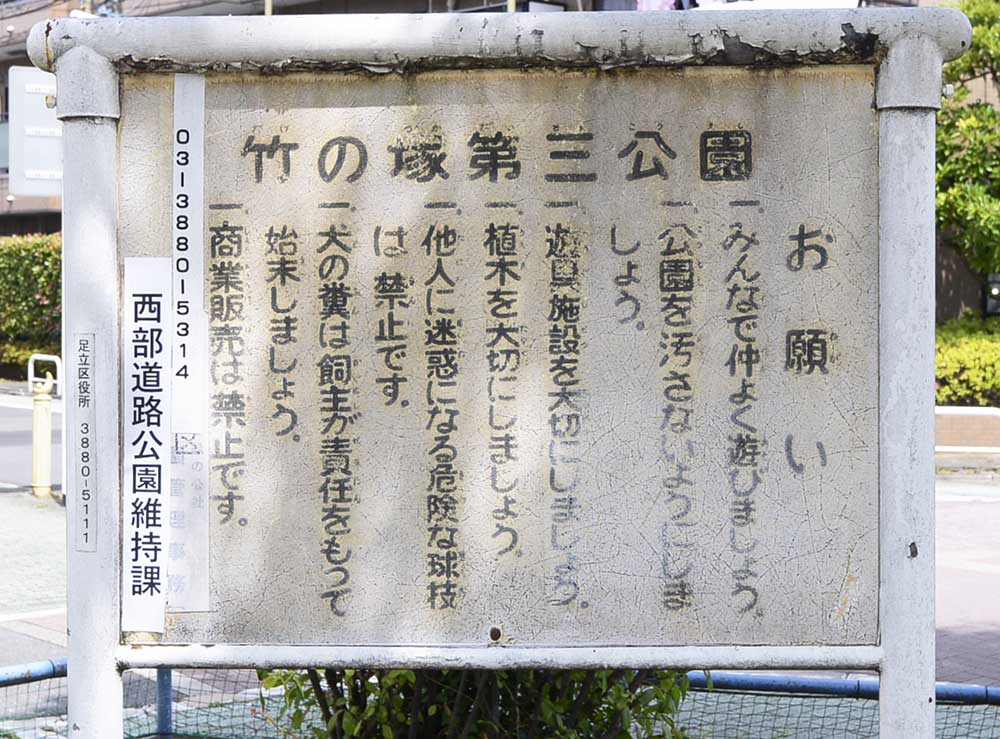 竹の塚第三公園
お願い
一、みんなで仲よく遊びましょう。
一、公園を汚さないようにしま
しょう。
一、遊具施設を大切にしましょう。
一、植木を大切にしましょう。
一、他人に迷惑になる危険な球技
は禁止です。
一、犬の糞は飼主が責任をもって
始末しましょう。
一、商業販売は禁止です。
03-3880-5314
西部道路公園維持課
足立区役所 3880-5111